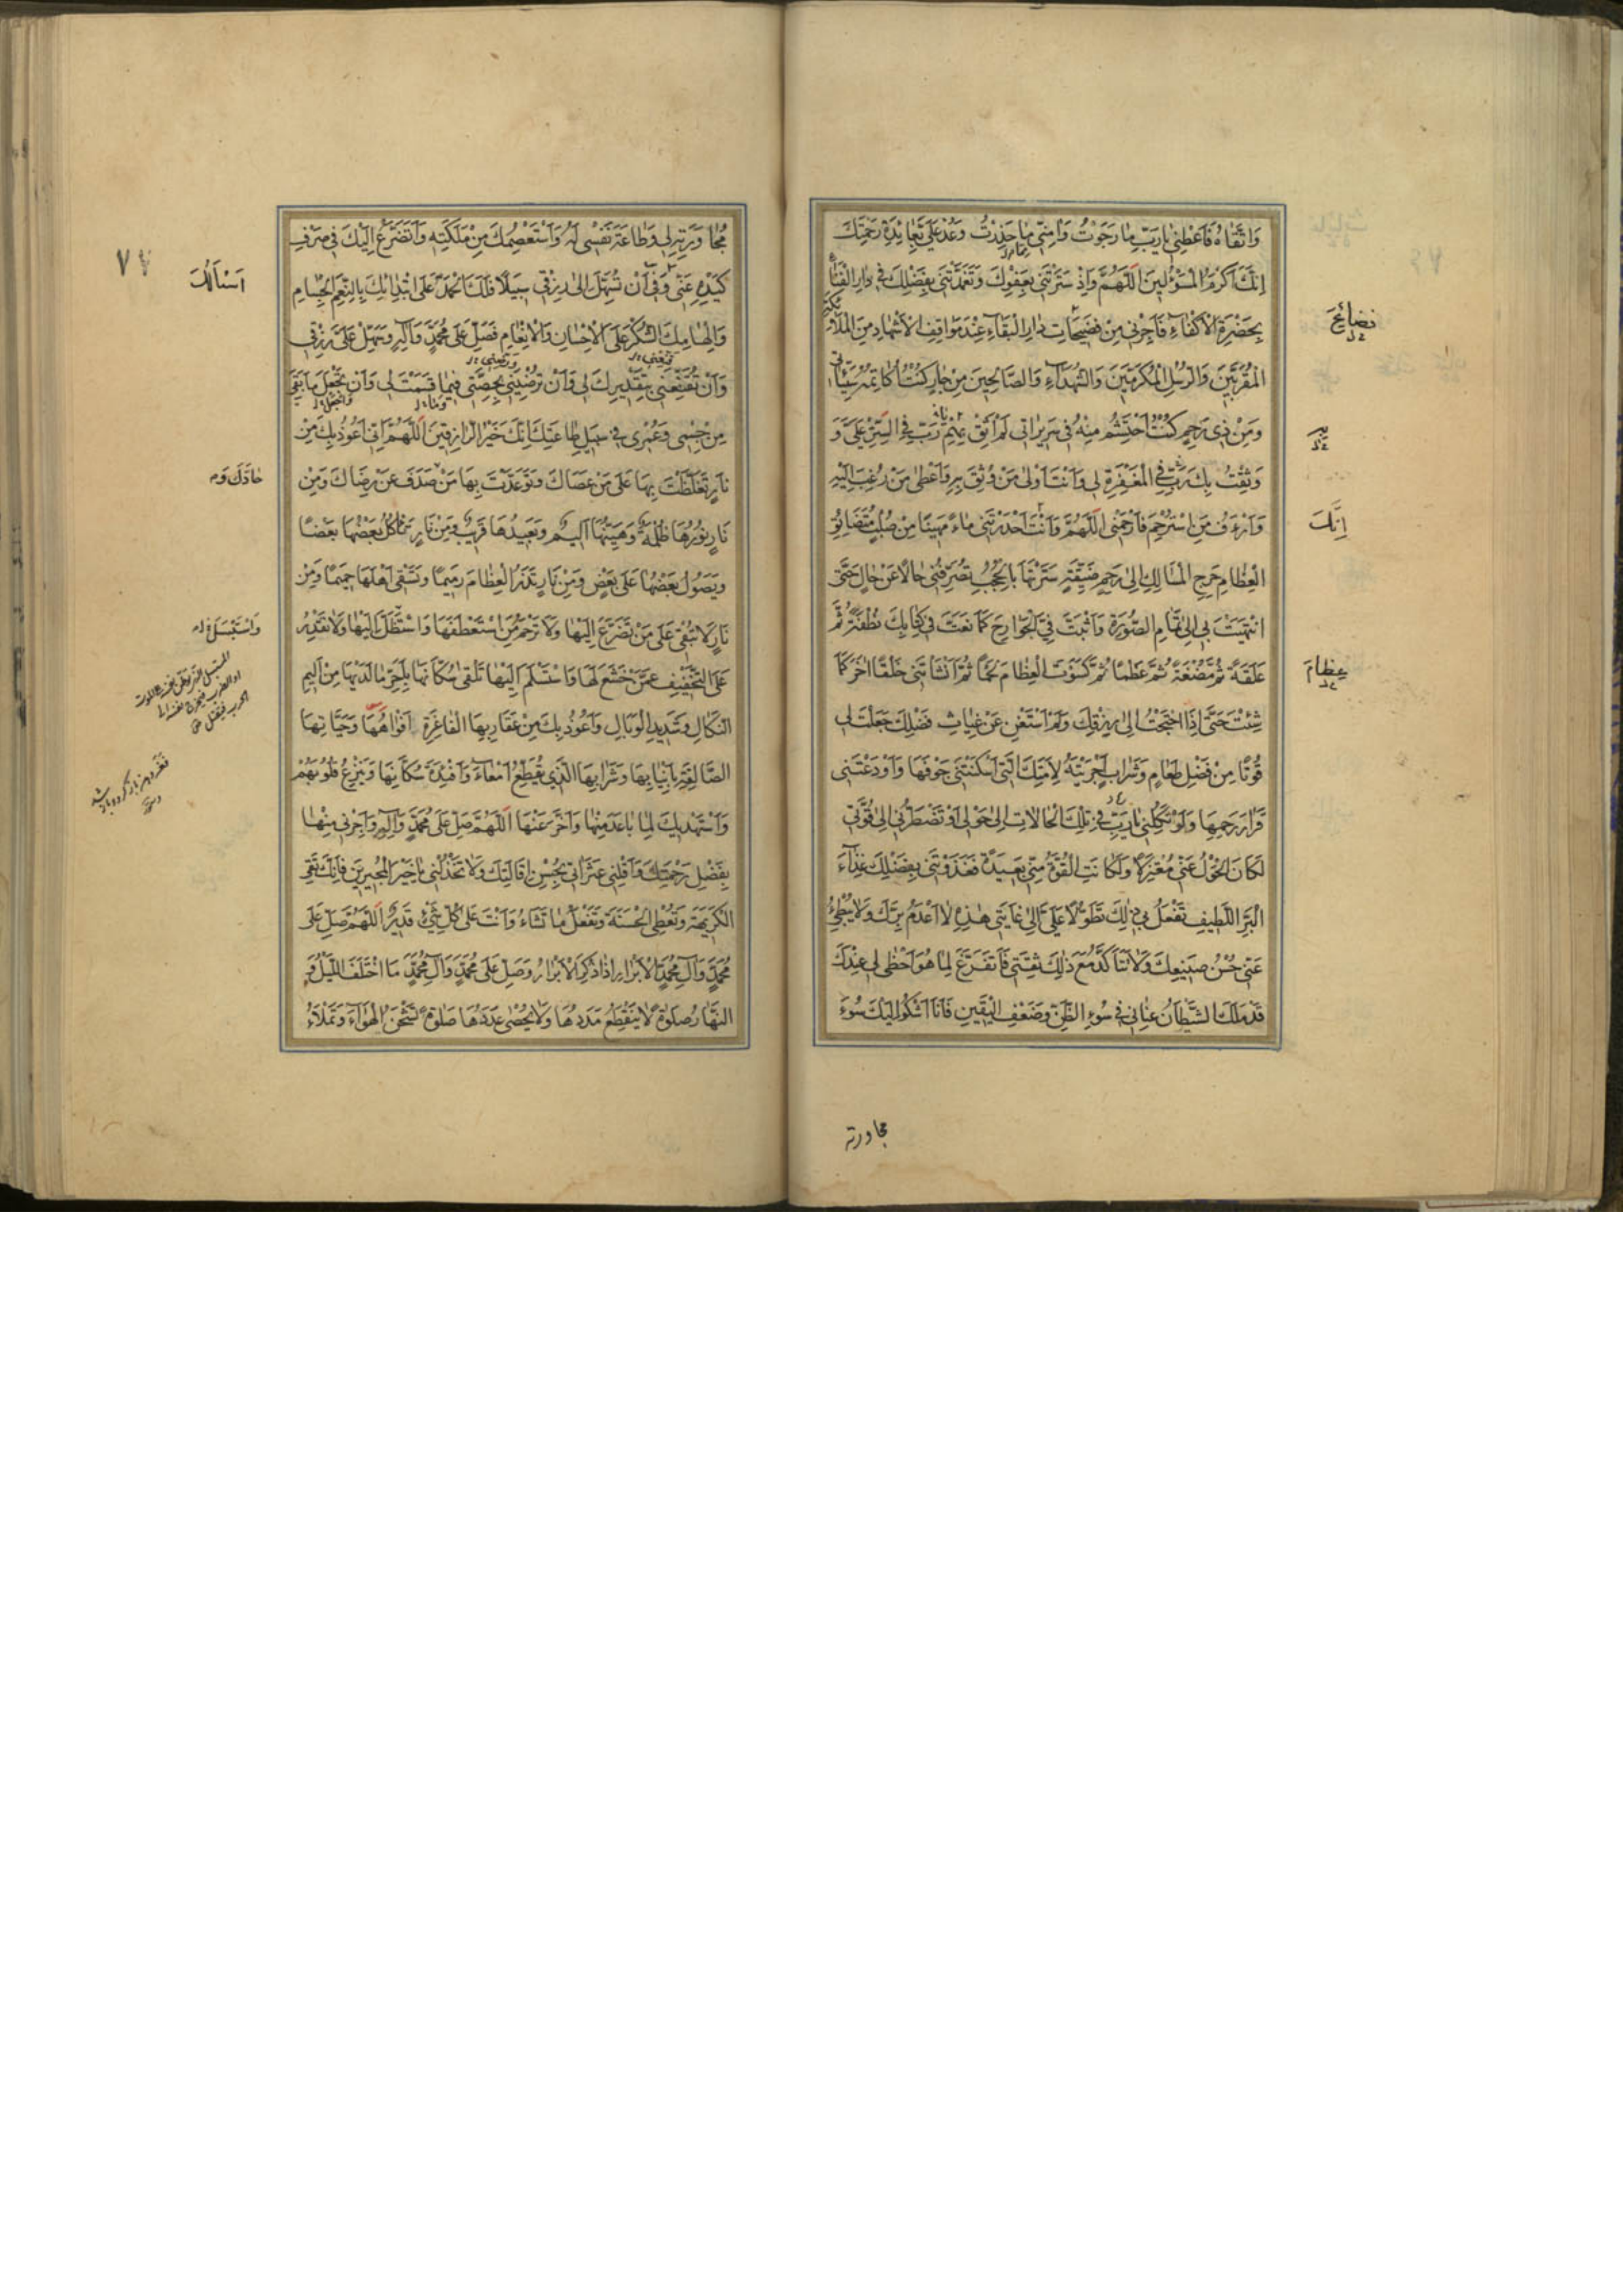 وَاتَّقَاهُ فَاَعْطِنِي يَا رَبِّ مَا رَجَوْتُ وَامِنِّي مَا حَذِرْتُ وَعُدْ عَلَيَّ بِعَائِدَةِ رَحْمَتِكَ
اِنَّكَ اَكْرَمُ الْمَسْؤُلِينَ اَللّٰهُمَّ وَاِذْ سَتَرْتَنِي بِعَفْوِكَ وَتَغَمَّدْتَنِي بِفَضْلِكَ فِي دَارِ الْفَنَاءِ
بِحَضْرَةِ الْاَكْفَاءِ فَاَجِرْنِي مِنْ فَضِيحَاتِ دَارِ الْبَقَاءِ عِنْدَ مَوَاقِفِ الْاَشْهَادِ مِنَ الْمَلَائِكَةِ
الْمُقَرَّبِينَ وَالرُّسُلِ الْمُكَرَّمِينَ وَالشُّهَدَاءِ وَالصَّالِحِينَ مِنْ جَارٍ كُنْتُ اُكَاتِمُهُ سَيِّئَاتِي
وَمِنْ ذِي رَحِمٍ كُنْتُ اَحْتَشِمُ مِنْهُ فِي سَرِيرَاتِي لَمْ اَثِقْ بِهِمْ رَبِّ فِي السِّتْرِ عَلَيَّ وَ
وَثِقْتُ بِكَ رَبِّ فِي الْمَغْفِرَةِ لِي وَاَنْتَ اَوْلٰى مَنْ وُثِقَ بِهِ وَاَعْطٰى مَنْ رُغِبَ اِلَيْهِ
وَاَرْءَفُ مَنِ اسْتُرْحِمَ فَارْحَمْنِي اَللّٰهُمَّ وَاَنْتَ اَحْدَرْتَنِي مَاءً مَهِينًا مِنْ صُلْبٍ مُتَضَائِقِ
الْعِظَامِ حَرِجِ الْمَسَالِكِ اِلٰى رَحِمٍ ضَيِّقَةٍ سَتَرْتَهَا بِالْحُجُبِ تُصَرِّفُنِي حَالًا عَنْ حَالٍ حَتّٰى
انْتَهَيْتَ بِي اِلٰى تَمَامِ الصُّورَةِ وَاَثْبَتَّ فِيَّ الْجَوَارِحَ كَمَا نَعَتَّ فِي كِتَابِكَ نُطْفَةً ثُمَّ
عَلَقَةً ثُمَّ مُضْغَةً ثُمَّ عَظْمًا ثُمَّ كَسَوْتَ الْعِظَامَ لَحْمًا ثُمَّ اَنْشَأْتَنِي خَلْقًا اٰخَرَ كَمَا
شِئْتَ حَتّٰى اِذَا احْتَجْتُ اِلٰى رِزْقِكَ وَلَمْ اَسْتَغْنِ عَنْ غِيَاثِ فَضْلِكَ جَعَلْتَ لِي
قُوتًا مِنْ فَضْلِ طَعَامٍ وَشَرَابٍ اَجْرَيْتَهُ لِاَمَتِكَ الَّتِي اَسْكَنْتَنِي جَوْفَهَا وَاَوْدَعْتَنِي
قَرَارَ رَحِمِهَا وَلَوْ تَكِلْنِي يَا رَبِّ فِي تِلْكَ الْحَالَاتِ اِلٰى حَوْلِي اَوْ تَضْطَرُّنِي اِلٰى قُوَّتِي
لَكَانَ الْحَوْلُ عَنِّي مُعْتَزِلًا وَلَكَانَتِ الْقُوَّةُ مِنِّي بَعِيدَةً فَغَذَوْتَنِي بِفَضْلِكَ غِذَاءَ
الْبَرِّ اللَّطِيفِ تَفْعَلُ بِي ذٰلِكَ تَطَوُّلًا عَلَيَّ اِلٰى غَايَتِي هٰذِهِ لَا اَعْدَمُ بِرَّكَ وَلَا يُبْطِئُ
عَنِّي حُسْنُ صَنِيعِكَ وَلَا تَتَاَكَّدُ مَعَ ذٰلِكَ ثِقَتِي فَاَتَفَرَّغَ لِمَا هُوَ اَحْظٰى لِي عِنْدَكَ
قَدْ مَلَكَ الشَّيْطَانُ عِنَانِي فِي سُوءِ الظَّنِّ وَضَعْفِ الْيَقِينِ فَاَنَا اَشْكُو اِلَيْكَ سُوءَ
فضائح
اِنَّكَ
عِظَامَ
مجاورته
مُجَاوَرَتِهِ لِي وَطَاعَةَ نَفْسِي لَهُ وَاَسْتَعْصِمُكَ مِنْ مَلَكَتِهِ وَاَتَضَرَّعُ اِلَيْكَ فِي صَرْفِ
كَيْدِهِ عَنِّي وَفِي اَنْ تُسَهِّلَ اِلٰى رِزْقِي سَبِيلًا فَلَكَ الْحَمْدُ عَلَى ابْتِدَائِكَ بِالنِّعَمِ الْجِسَامِ
وَاِلْهَامِكَ الشُّكْرَ عَلَى الْاِحْسَانِ وَالْاِنْعَامِ فَصَلِّ عَلٰى مُحَمَّدٍ وَاٰلِهِ وَسَهِّلْ عَلَيَّ رِزْقِي
وَاَنْ تُقَنِّعَنِي بِتَقْدِيرِكَ لِي وَاَنْ تُرْضِيَنِي بِحِصَّتِي فِيمَا قَسَمْتَ لِي وَاَنْ تَجْعَلَ مَا بَقِيَ
مِنْ جِسْمِي وَعُمْرِي فِي سَبِيلِ طَاعَتِكَ اِنَّكَ خَيْرُ الرَّازِقِينَ اَللّٰهُمَّ اِنِّي اَعُوذُ بِكَ مِنْ
نَارٍ تَغَلَّظْتَ بِهَا عَلٰى مَنْ عَصَاكَ وَتَوَعَّدْتَ بِهَا مَنْ صَدَفَ عَنْ رِضَاكَ وَمِنْ
نَارٍ نُورُهَا ظُلْمَةٌ وَهَيِّنُهَا اَلِيمٌ وَبَعِيدُهَا قَرِيبٌ وَمِنْ نَارٍ تَأْكُلُ بَعْضُهَا بَعْضًا
وَيَصُولُ بَعْضُهَا عَلٰى بَعْضٍ وَمِنْ نَارٍ تَذَرُ الْعِظَامَ رَمِيمًا وَتَسْقِي اَهْلَهَا حَمِيمًا وَمِنْ
نَارٍ لَا تُبْقِي عَلٰى مَنْ تَضَرَّعَ اِلَيْهَا وَلَا تَرْحَمُ مَنِ اسْتَعْطَفَهَا وَاسْتَظَلَّ اِلَيْهَا وَلَا تَقْدِرُ
عَلَى التَّخْفِيفِ عَمَّنْ خَشَعَ لَهَا وَاسْتَسْلَمَ اِلَيْهَا تَلْقٰى سُكَّانَهَا بِاَحَرِّ مَا لَدَيْهَا مِنْ اَلِيمِ
النَّكَالِ وَشَدِيدِ الْوَبَالِ وَاَعُوذُ بِكَ مِنْ عَقَارِبِهَا الْفَاغِرَةِ اَفْوَاهُهَا وَحَيَّاتِهَا
الصَّالِقَةِ بِاَنْيَابِهَا وَشَرَابِهَا الَّذِي يُقَطِّعُ اَمْعَاءَ وَاَفْئِدَةَ سُكَّانِهَا وَيَنْزِعُ قُلُوبَهُمْ
وَاَسْتَهْدِيكَ لِمَا بَاعَدَ مِنْهَا وَاَخَّرَ عَنْهَا اَللّٰهُمَّ صَلِّ عَلٰى مُحَمَّدٍ وَاٰلِهِ وَاَجِرْنِي مِنْهَا
بِفَضْلِ رَحْمَتِكَ وَاَقِلْنِي عَثَرَاتِي بِحُسْنِ اِقَالَتِكَ وَلَا تَخْذُلْنِي يَا خَيْرَ الْمُجِيرِينَ فَاِنَّكَ تَقِي
الْكَرِيهَةَ وَتُعْطِي الْحَسَنَةَ وَتَفْعَلُ مَا تَشَاءُ وَاَنْتَ عَلٰى كُلِّ شَيْءٍ قَدِيرٌ اَللّٰهُمَّ صَلِّ عَلٰى
مُحَمَّدٍ وَاٰلِ مُحَمَّدٍ الْاَبْرَارِ اِذَا ذُكِرَ الْاَبْرَارُ وَصَلِّ عَلٰى مُحَمَّدٍ وَاٰلِ مُحَمَّدٍ مَا اخْتَلَفَ اللَّيْلُ وَ
النَّهَارُ صَلٰوةً لَا يَنْقَطِعُ مَدَدُهَا وَلَا يُحْصٰى عَدَدُهَا صَلٰوةً تَشْحَنُ الْهَوَاءَ وَتَمْلَأُ
اَسْاَلُكَ